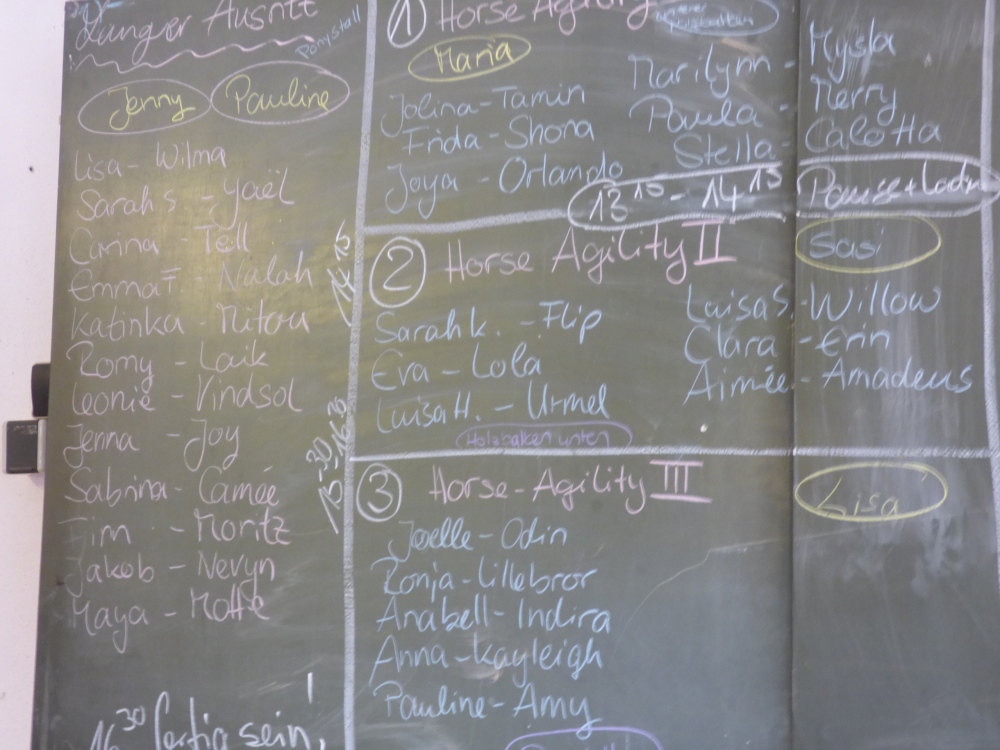 Langer Ausritt
Ponystall
Jenny Pauline
Lisa - Wilma
Sarah S. - Yaël
Carina - Tell
Emma F. Nalah
Katinka - Mitou
Romy - Laik
Leonie - Vindsol
Jenna - Joy
Sabrina - Camée
Tim - Moritz
Jakob - Nevyn
Maya - Motte
16 30 fertig sein!
1 Horse Agility I
Maria
Jolina - Tamin
Frida - Shona
Joya - Orlando
Marilynn - Mysla
Paula - Merry
Stella - Calotta
13 15 - 14 15 Pause + Ladu
2 Horse Agility II
Sasi
Sarah K. - Flip
Eva - Lola
Luisa H. - Urmel
Luisa S. - Willow
Clara - Erin
Aimée - Amadeus
Holzbalken unten
3 Horse-Agility III
Lisa
Joelle - Odin
Ronja - Lillebror
Anabell - Indira
Anna - Kayleigh
Pauline - Amy